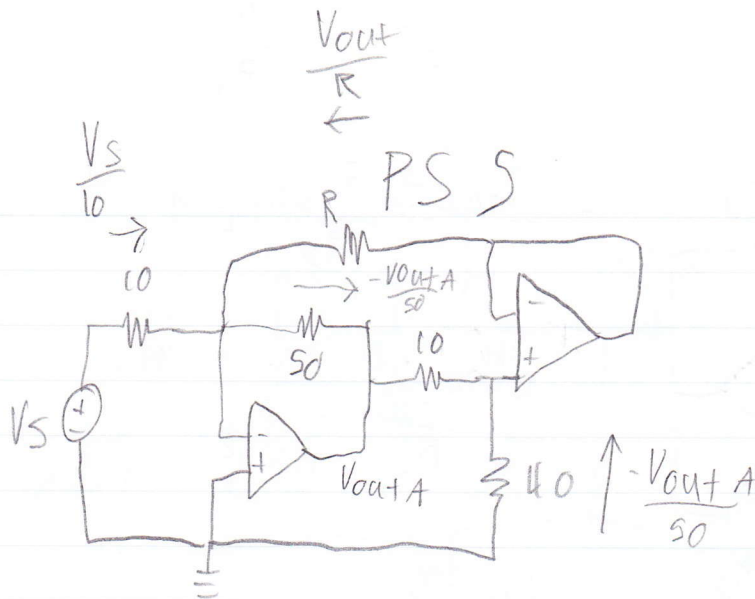 Vout
R
←
Vs
10
→
PS 5
R
10
→ -Vout A
50
50
10
-
+
Vs
+
-
-
+
Vout A
40
-Vout A
50